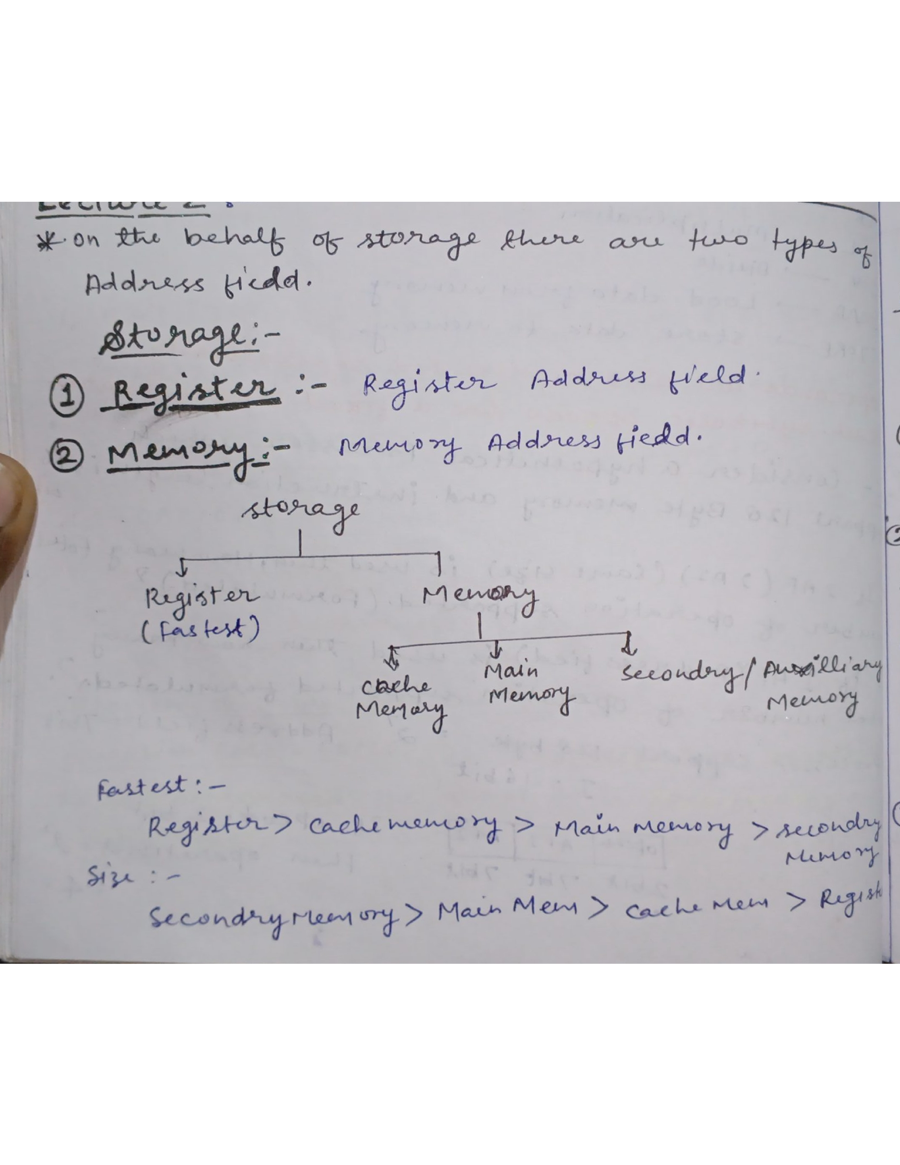 Lecture 2 :
* on the behalf of storage there are two types of
Address field.
Storage:-
① Register :- Register Address field.
② Memory:- Memory Address field.
storage
Register Memory
(Fastest)
Cache Memory
Main Memory
Secondry/Auxilliary Memory
Fastest :-
Register > Cache memory > Main Memory > secondry
Memory
Size :-
Secondry Memory > Main Mem > Cache Mem > Regist